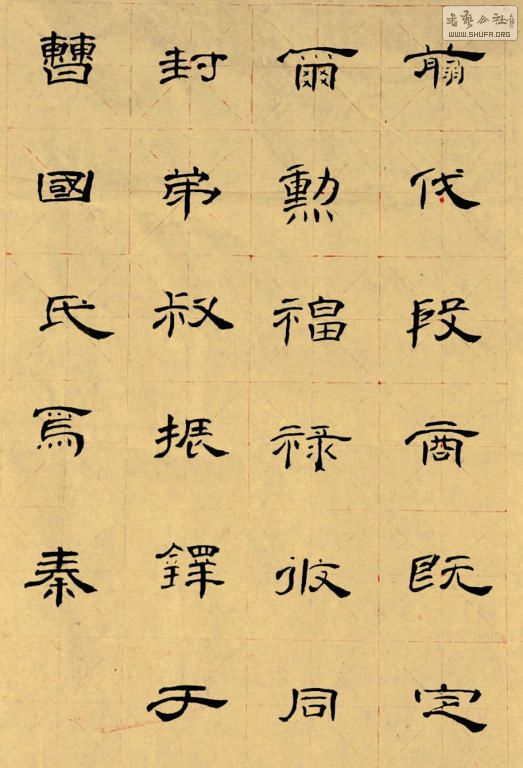 翦伐殷商既定
爾勳福祿攸同
封弟叔振鐸于
曹國氏焉秦
書藝公社
WWW.SHUFA.ORG